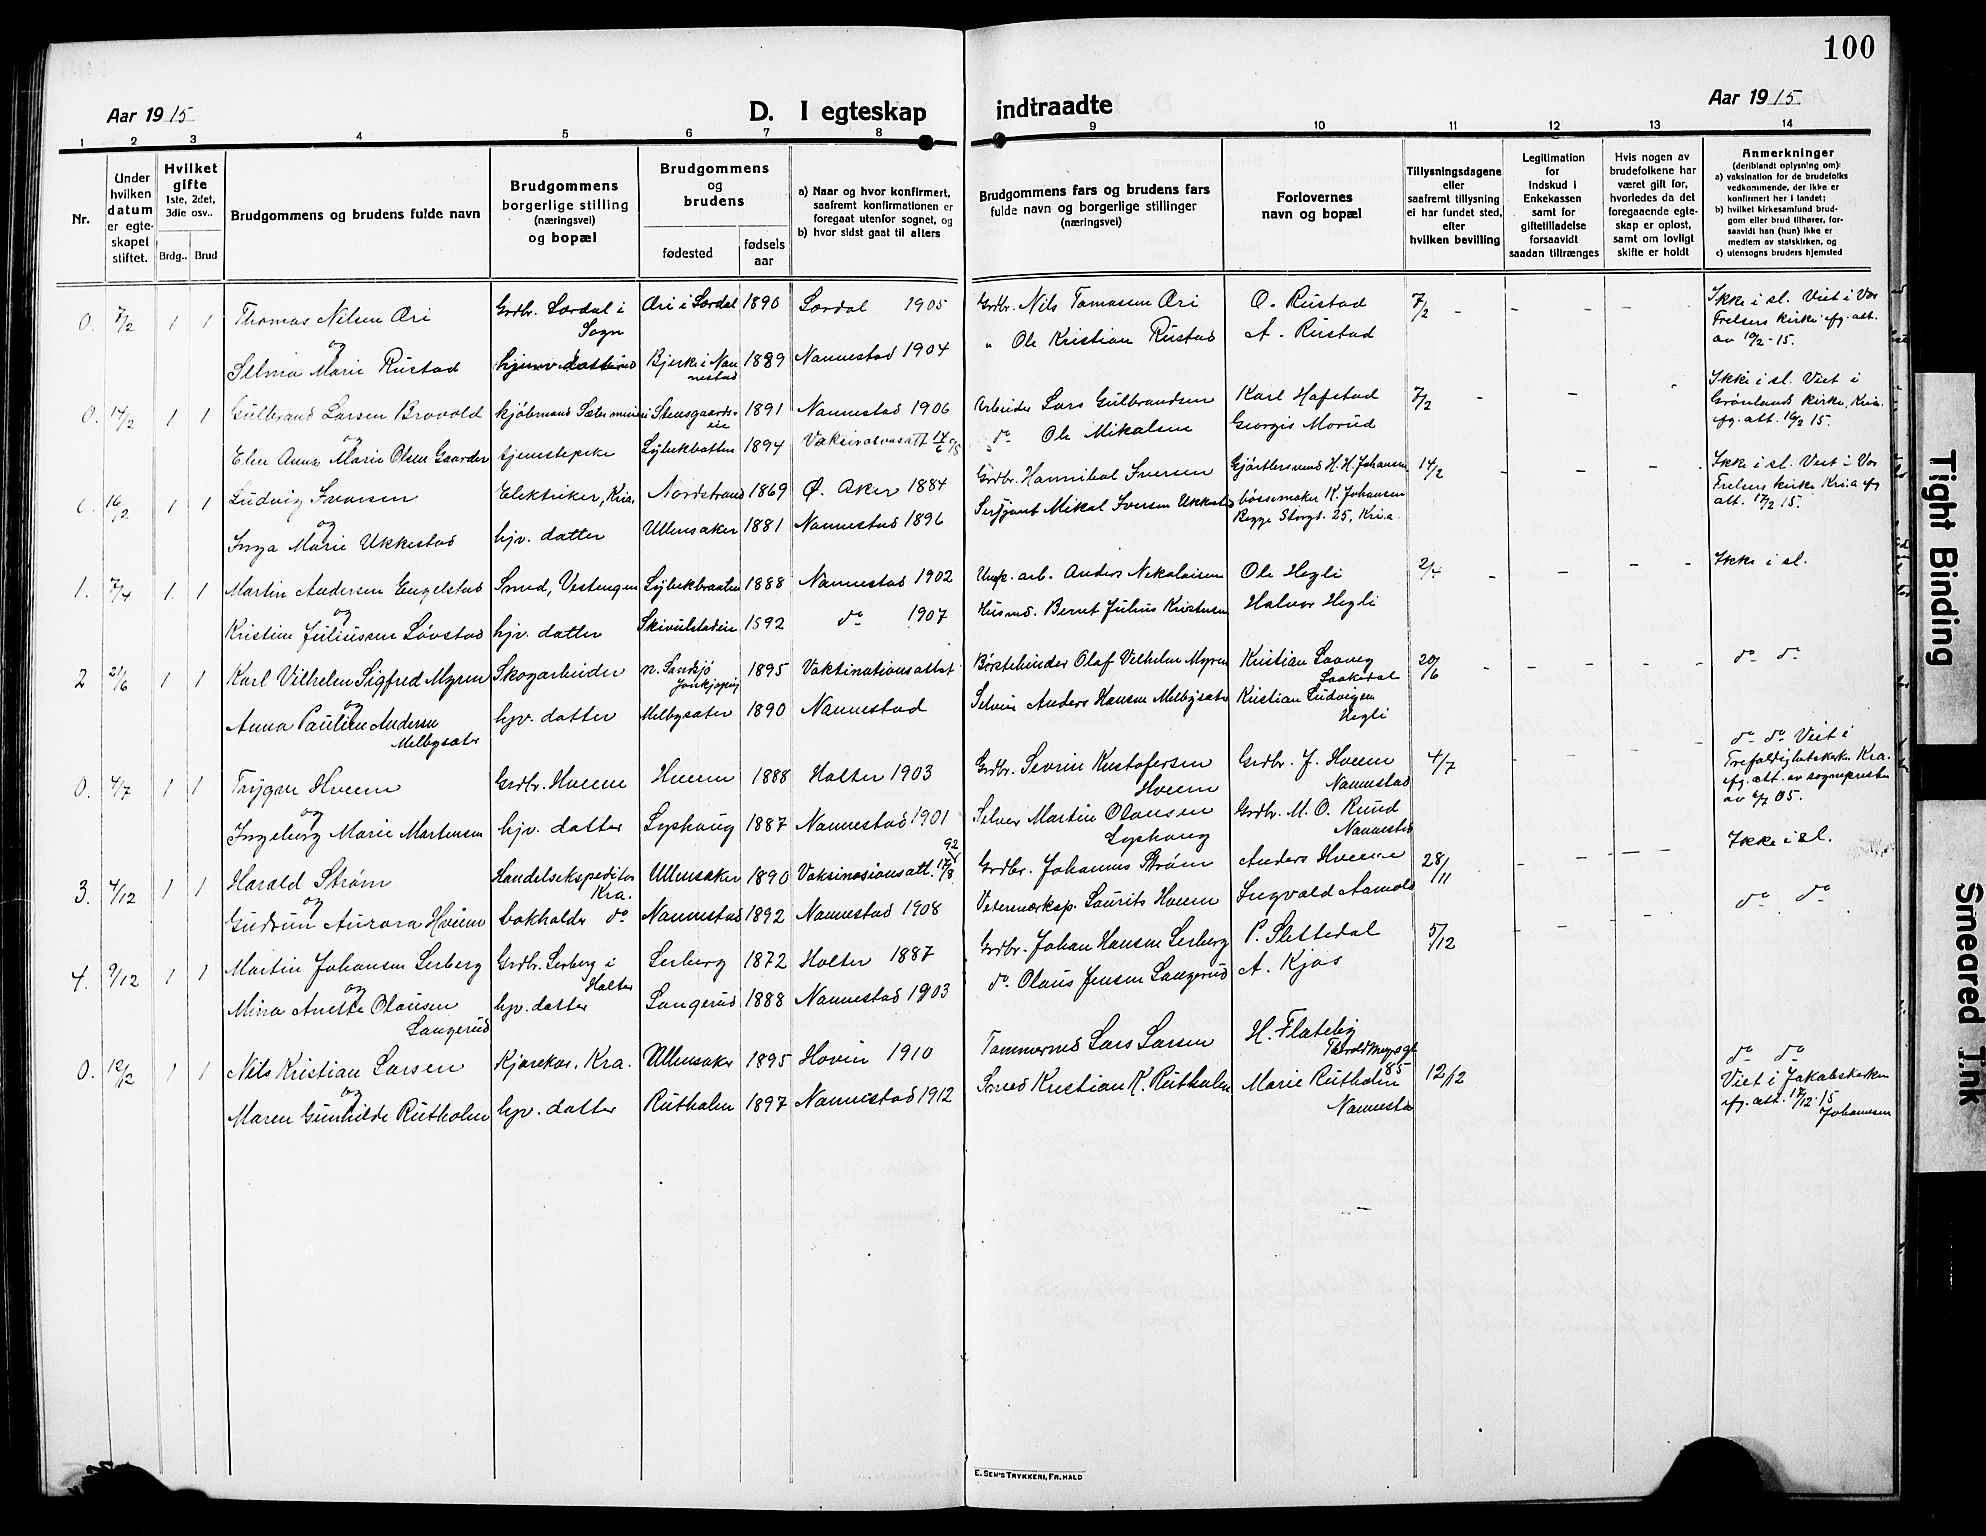 100
Aar 1915
D. I egteskap
indtraadte
Aar 1915
1 2 3 4 5 6 7 8 9 10 11 12 13 14
Nr.
Under hvilken datum er egteskapet stiftet.
Hvilket gifte 1ste, 2det, 3die osv..
Brdg.. Brud
Brudgommens og brudens fulde navn
Brudgommens borgerlige stilling (næringsvei) og bopæl
Brudgommens og brudens
fødested
fødsels aar
a) Naar og hvor konfirmert, saafremt konfirmationen er foregaat utenfor sognet, og
b) hvor sidst gaat til alters
Brudgommens fars og brudens fars fulde navn og borgerlige stillinger (næringsvei)
Forlovernes navn og bopæl
Tillysningsdagene eller saafremt tillysning ei har fundet sted, efter hvilken bevilling
Legitimation for indskud i Enkekassen samt for giftetilladelse forsaavidt saadan tiltrænges
Hvis nogen av brudefolkene har været gift før, hvorledes da det foregaaende egteskap er opløst, samt om lovligt skifte er holdt
Anmerkninger (deriblandt oplysning om):
a) vaksination for de brudefolks vedkommende, der ikke er konfirmert her i landet;
b) hvilket kirkesamfund brudgom eller brud tilhører, forsaavidt han (hun) ikke er medlem av statskirken, og
c) utensogns bruders hjemsted
0. 7/2 1 1 Thomas Nilsen Øri Grdbr. Lærdal i Sogn Øri i Lærdal 1890 Lærdal 1905 Grdbr. Nils Tomassen Øri O. Rustad 7/2 - - - Ikke i sl. Viet i Vor Frelsers kirke ifg. att. av 10/2-15.
og
Selma Marie Rustad hjemv. datter Bjerke i Nannestad 1889 Nannestad 1904 " Ole Kristian Rustad A. Rustad
0. 14/2 1 1 Gulbrand Larsen Brovold kjøbmand Stensgaardseie 1891 Nannestad 1906 Arbeider Lars Gulbrandsen Karl Hafstad 7/2 - - - Ikke i sl. Viet i Grønlands kirke, Kria. ifg. att. 16/2 15.
og
Elen Anna Marie Olsen Gaarder tjenestepike Lybekbatten 1894 Vaksinationsatt. do Ole Mikalsen Georgis Morud
0. 16/2 1 1 Ludvig Iversen Elektriker, Kria. Nordstrand 1869 Ø. Aker 1884 Grdbr. Hannibal Iversen Gjørtlersvend H. H. Johansen 14/2 - - - Ikke i sl. Viet i Vor Frelsers kirke Kria ifg att. 17/2 15.
og
Inga Marie Ukkestad hjv. datter Ullensaker 1881 Nannestad 1896 Sersjant Mikal Iversen Ukkestad bøssemaker K. Johansen Begge Storgt. 25, Kria.
1. 7/4 1 1 Martin Andersen Engelstad Smed, Vestengen Lybekbraaten 1888 Nannestad 1902 Anders Nikolaisen Ole Hegli 2/4 - - - Ikke i sl.
og
Kristine Juliussen Løvstad hjv. datter Skivulstadeie 1892 do 1907 Husmd. Bernt Julius Kristensen Halvor Hegli
2 21/6 1 1 Karl Vilhelm Sigfred Myren Skogarbeider n. Sandsjø Jonkjøping 1895 Vaktinationsattest Børstebinder Olaf Vilhelm Myren Kristian 20/6 - - - do do
og
Anna Pauline Andersen Melbysæter hjv. datter Melbysæter 1890 Nannestad Selveier Anders Hansen Melbysæter Kristian Ludvigsen Hegli
0. 4/7 1 1 Trygve Hveem Grdbr. Hveem Hveem 1888 Holter 1903 Grdbr. Severin Kristofersen Hveem Grdbr. J. Hveem Nannestad 4/7 - - - do do Viet i Trefoldighetskirken Kra. ifg. att. av sognepresten av 6/7 05.
og
Ingeborg Marie Martinsen hjv. datter Lyshaug 1887 Nannestad 1901 Selveier Martin Olausen Lyshaug Grdbr. M. O. Ruud Nannestad
3. 4/12 1 1 Harald Strøm Handelsekspeditør Kra. Ullensaker 1890 Vaksinasionsatt. 17/8 92 Grdbr. Johannes Strøm Anders Hveem 28/11 - - - Ikke i sl.
og
Gudrun Aurora Hveem bokholder do Nannestad 1892 Nannestad 1908 Laurits Hveem Ingvald Aamold - do do
4. 9/12 1 1 Martin Johansen Lerberg Grdbr. Lerberg i Holter Lerberg 1872 Holter 1887 Grdbr. Johan Hansen Lerberg P. Slettedal 5/12 - - -
og
Mina Anette Olausen Langerud hjv. datter Langerud 1888 Nannestad 1903 do Olaus Jensen Langerud A. Kjos
0. 12/2 1 1 Nils Kristian Larsen Kjørekar. Kra. Ullensaker 1895 Hovin 1910 Tømmermd Lars Larsen H. Flateby 85 12/12 do do Viet i Jakobskirken ifg. att. 17/12-15 Johannesen
og
Maren Gunhilde Rutholm hjv. datter Rutholm 1897 Nannestad 1912 Smed Kristian K. Rutholm Marie Rutholm Nannestad
E. SEM'S TRYKKERI, FR.HALD
Tight Binding
Smeared Ink